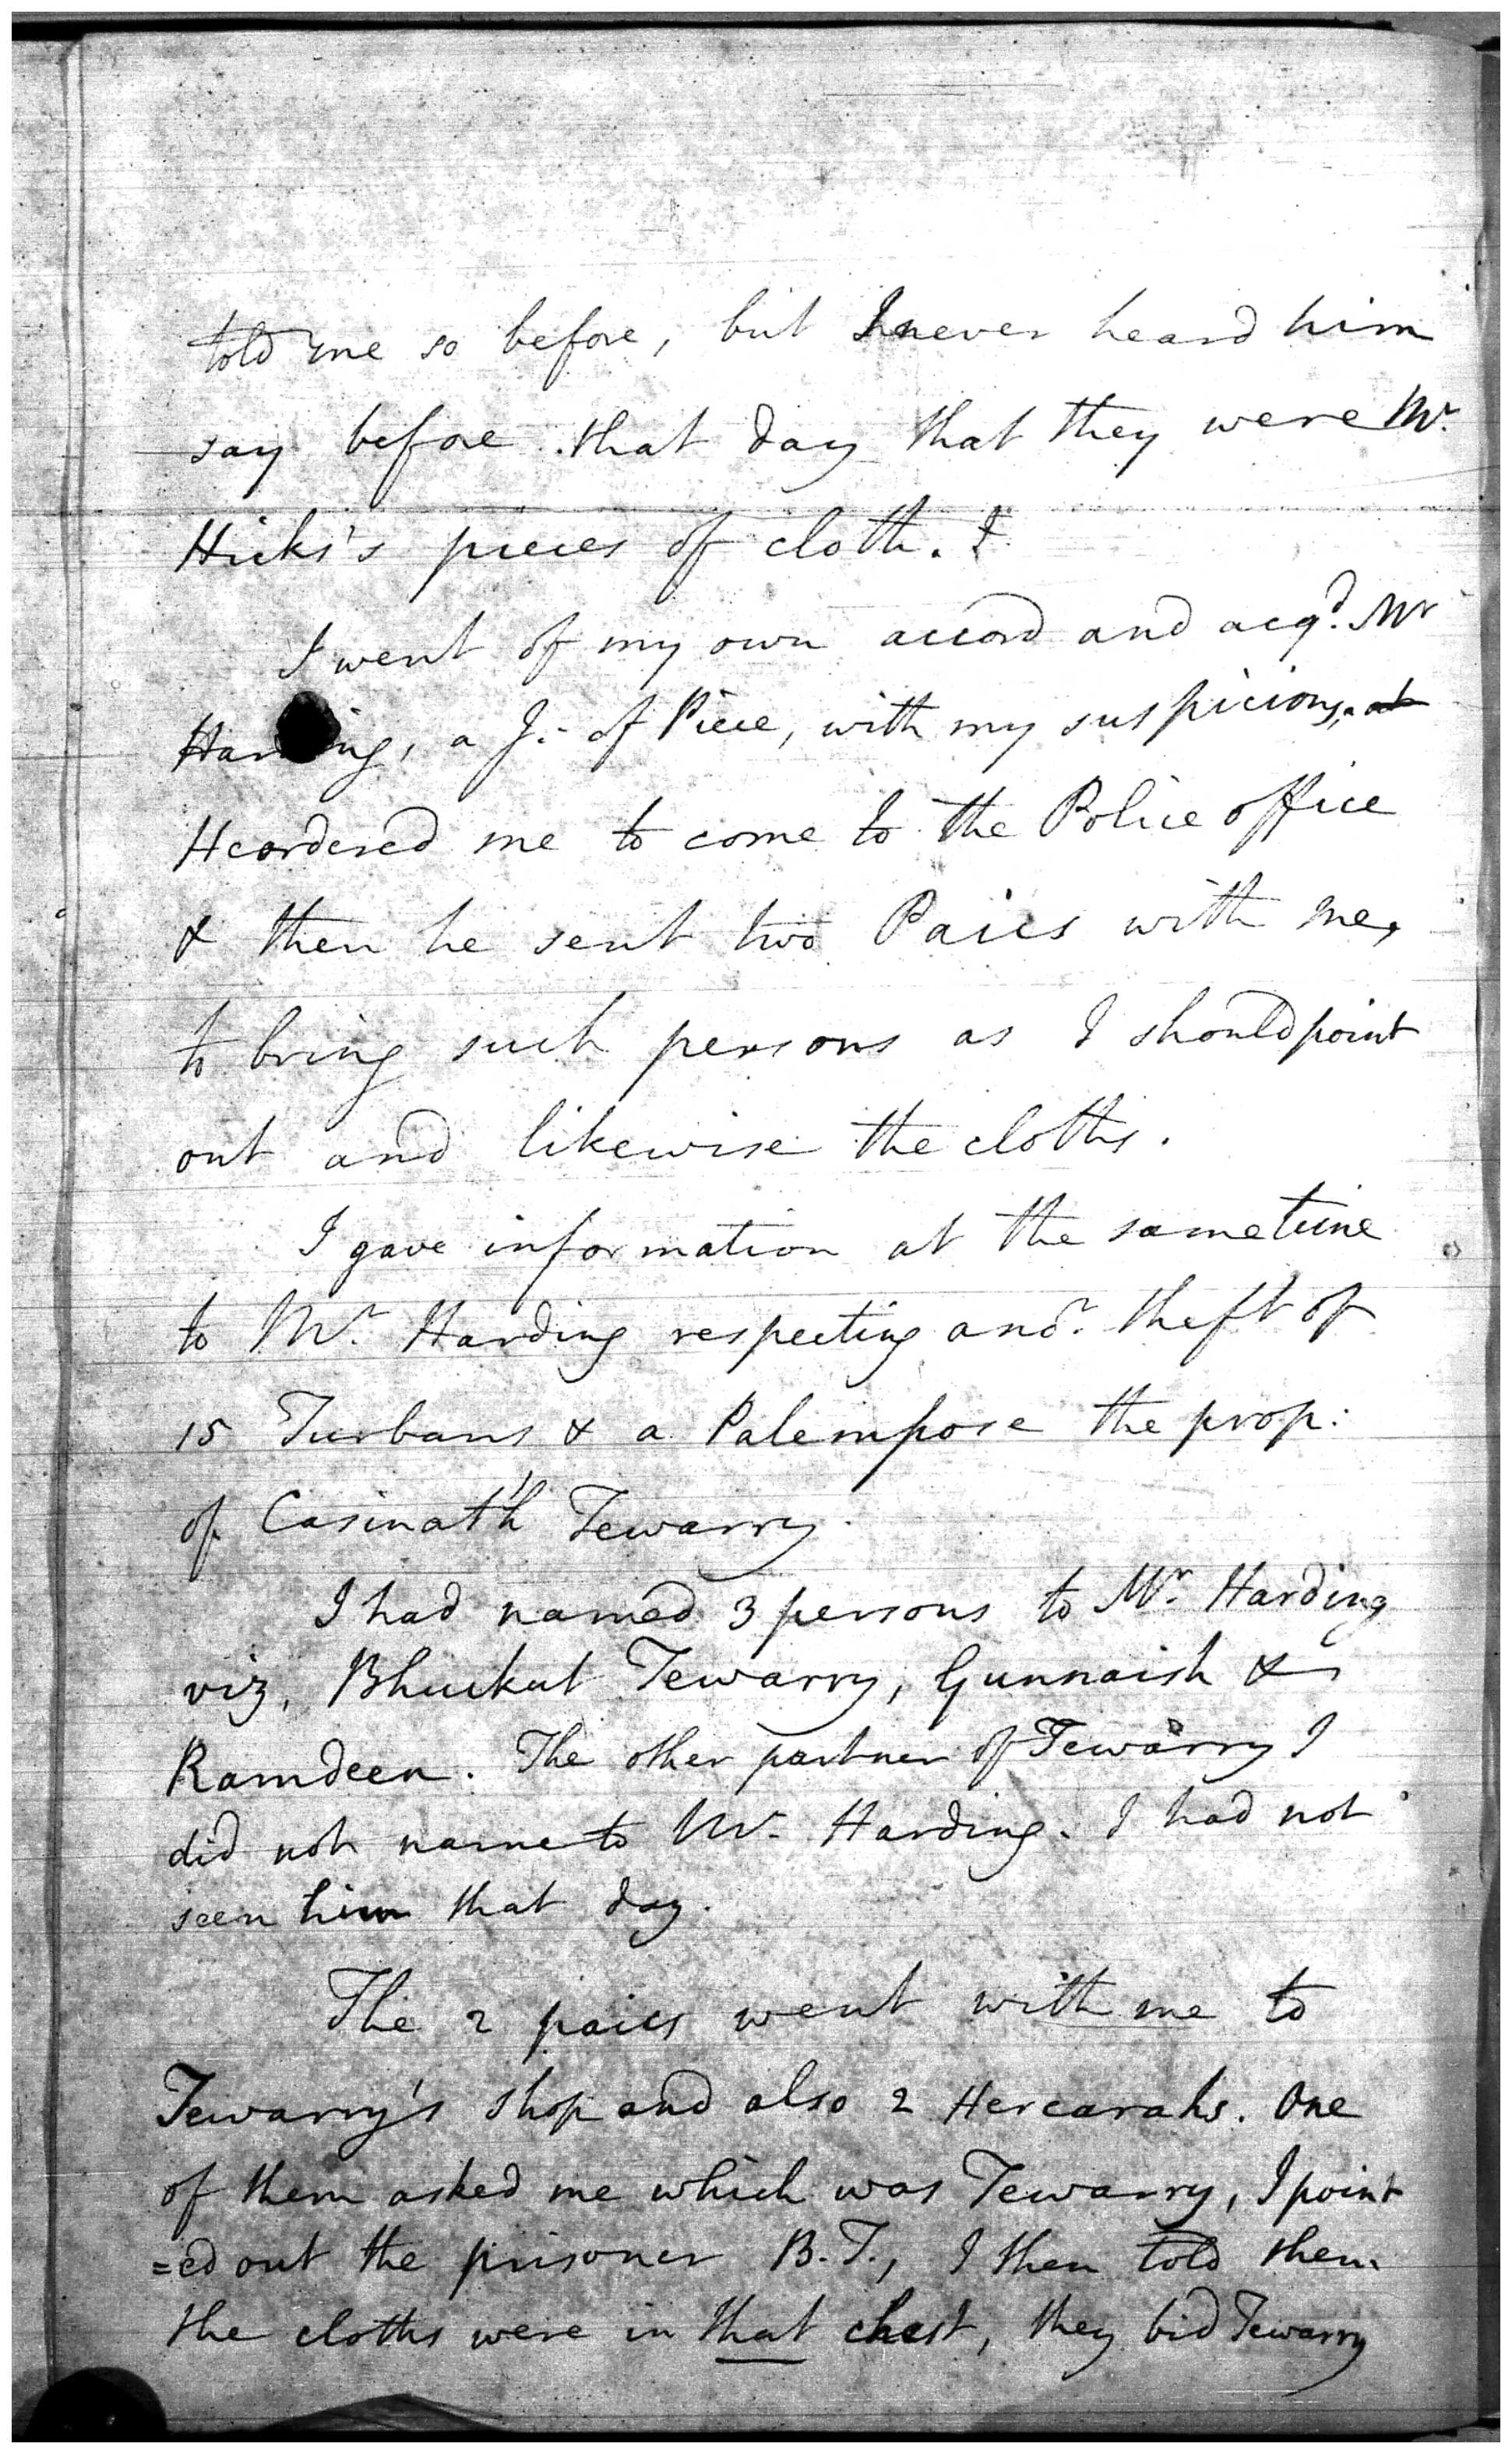 told me so before, but I never heard him
say before that day that they were Mr.
Hicks's pieces of cloth.
I went of my own accord and acqd. Mr
Harding, a J. of Piece, with my suspicions,
He ordered me to come to the Police office
& then he sent two Paics with me,
to bring such persons as I should point
out and likewise the cloths.
I gave information at the same time
to Mr. Harding respecting anor. theft of
15 Turbans & a Palempose the prop:
of Casinat'h Tewarry.
I had named 3 persons to Mr. Harding
viz, Bhuckut Tewarry, Gunnaish &
Ramdeen. The other partner of Tewarry I
did not name to Mr. Harding. I had not
seen him that day.
The 2 paics went with me to
Tewarry's shop and also 2 Hercarahs. One
of them asked me which was Tewarry, I point
=ed out the prisoner B.T., I then told them
the cloths were in that chest, they bid Tewarry